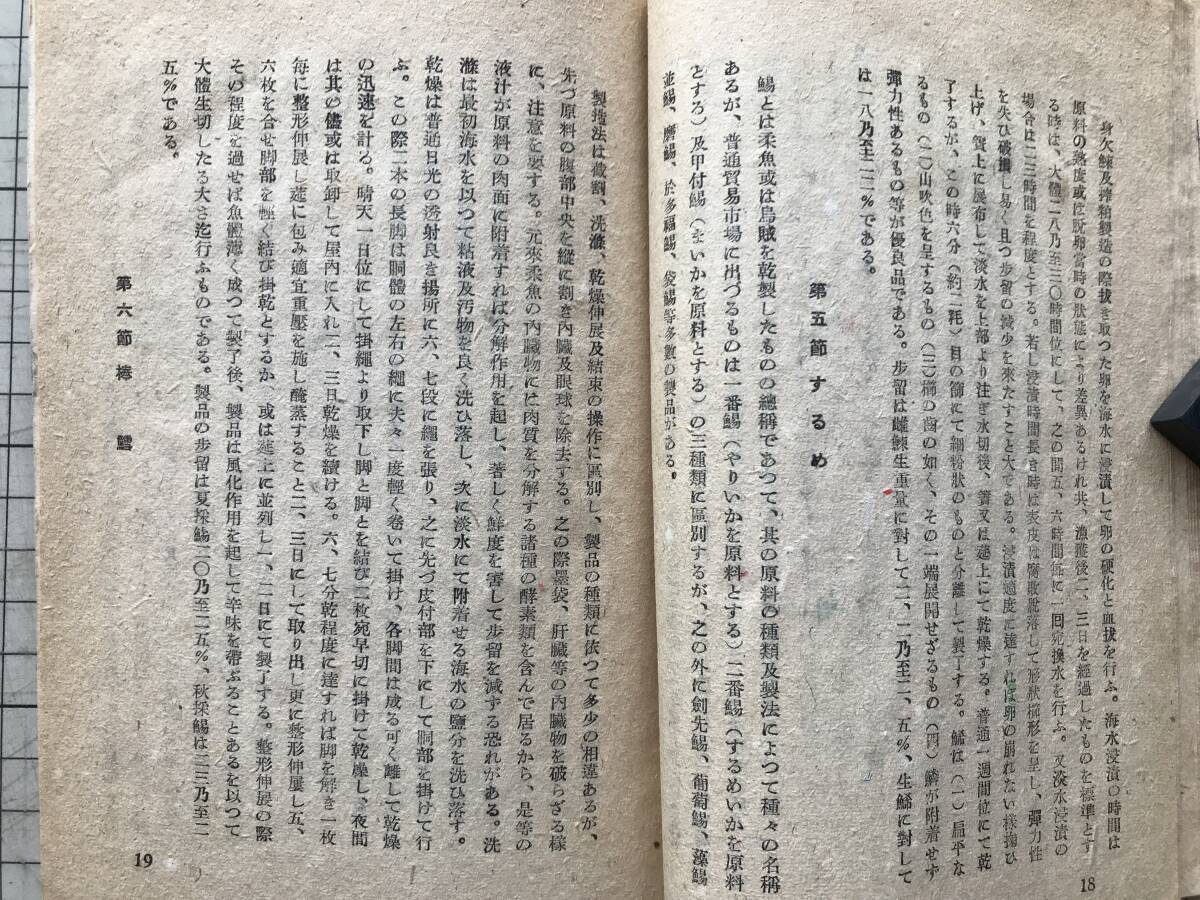 身欠鰊及搾粕製造の際拔き取つた卵を海水に浸漬して卵の硬化と血拔を行ふ。海水浸漬の時間は
原料の熟度或は脱卵當時の狀態により差異あるけれ共、漁獲後二、三日を經過したものを標準とす
る時は、大體二八乃至三〇時間位にして、之の間五、六時間每に一回宛換水を行ふ。又淡水浸漬の
場合は二三時間を程度とする。若し浸漬時間長き時は表皮は腐敗脱落して形狀櫛形を呈し、彈力性
を失ひ破損し易く且つ步留の減少を來たすこと大である。浸漬適度に達すれば卵の崩れない樣掬ひ
上げ、簀上に展布して淡水を上部より注ぎ水切後、簀又は莚上にて乾燥する。普通一週間位にて乾
了するが、この時六分（約二粍）目の篩にて細粉狀のものと分離して製了する。鯑は（一）扁平な
るもの（二）山吹色を呈するもの（三）櫛の齒の如く、その一端展開せざるもの（四）鱗が附着せず
彈力性あるもの等が優良品である。步留は雌鰊生重量に對して二、一乃至二、五％、生鯑に對して
は一八乃至二二％である。
第五節 するめ
鯣とは柔魚或は烏賊を乾製したものの總稱であつて、其の原料の種類及製法によつて種々の名稱
あるが、普通貿易市場に出づるものは一番鯣（やりいかを原料とする）二番鯣（するめいかを原料
とする）及甲付鯣（まいかを原料とする）の三種類に區別するが、之の外に劍先鯣、葡萄鯣、藻鯣
並鯣、磨鯣、於多福鯣、袋鯣等多數の製品がある。
18
製造法は截割、洗滌、乾燥伸展及結束の操作に區別し、製品の種類に依つて多少の相違あるが、
先づ原料の腹部中央を縱に割き內臟及眼球を除去する。之の際墨袋、肝臟等の內臟物を破らざる樣
に、注意を要する。元來柔魚の內臟物には肉質を分解する諸種の酵素類を含んで居るから、是等の
液汁が原料の肉面に附着すれば分解作用を起し、著しく鮮度を害して步留を減ずる恐れがある。洗
滌は最初海水を以つて粘液及汚物を良く洗ひ落し、次に淡水にて附着せる海水の鹽分を洗ひ落す。
乾燥は普通日光の透射良き場所に六、七段に繩を張り、之に先づ皮付部を下にして胴部を掛けて行
ふ。この際二本の長脚は胴體の左右の繩に夫々一度輕く卷いて掛け、各脚間は成る可く離して乾燥
の迅速を計る。晴天一日位にして掛繩より取下し脚と脚とを結び二枚宛早切に掛けて乾燥し、夜間
は其の儘或は取卸して屋內に入れ二、三日乾燥を續ける。六、七分乾程度に達すれば脚を解き一枚
每に整形伸展し莚に包み適宜重壓を施し醃蒸すること二、三日にして取り出し更に整形伸展し五、
六枚を合せ脚部を輕く結び掛乾とするか、或は莚上に並列し一、二日にて製了する。整形伸展の際
その程度を過せば魚體薄く成つて製了後、製品は風化作用を起して辛味を帶ぶることあるを以つて
大體生切したる大さ迄行ふものである。製品の步留は夏採鯣二〇乃至二五％、秋採鯣は二三乃至二
五％である。
第六節 棒鱈
19